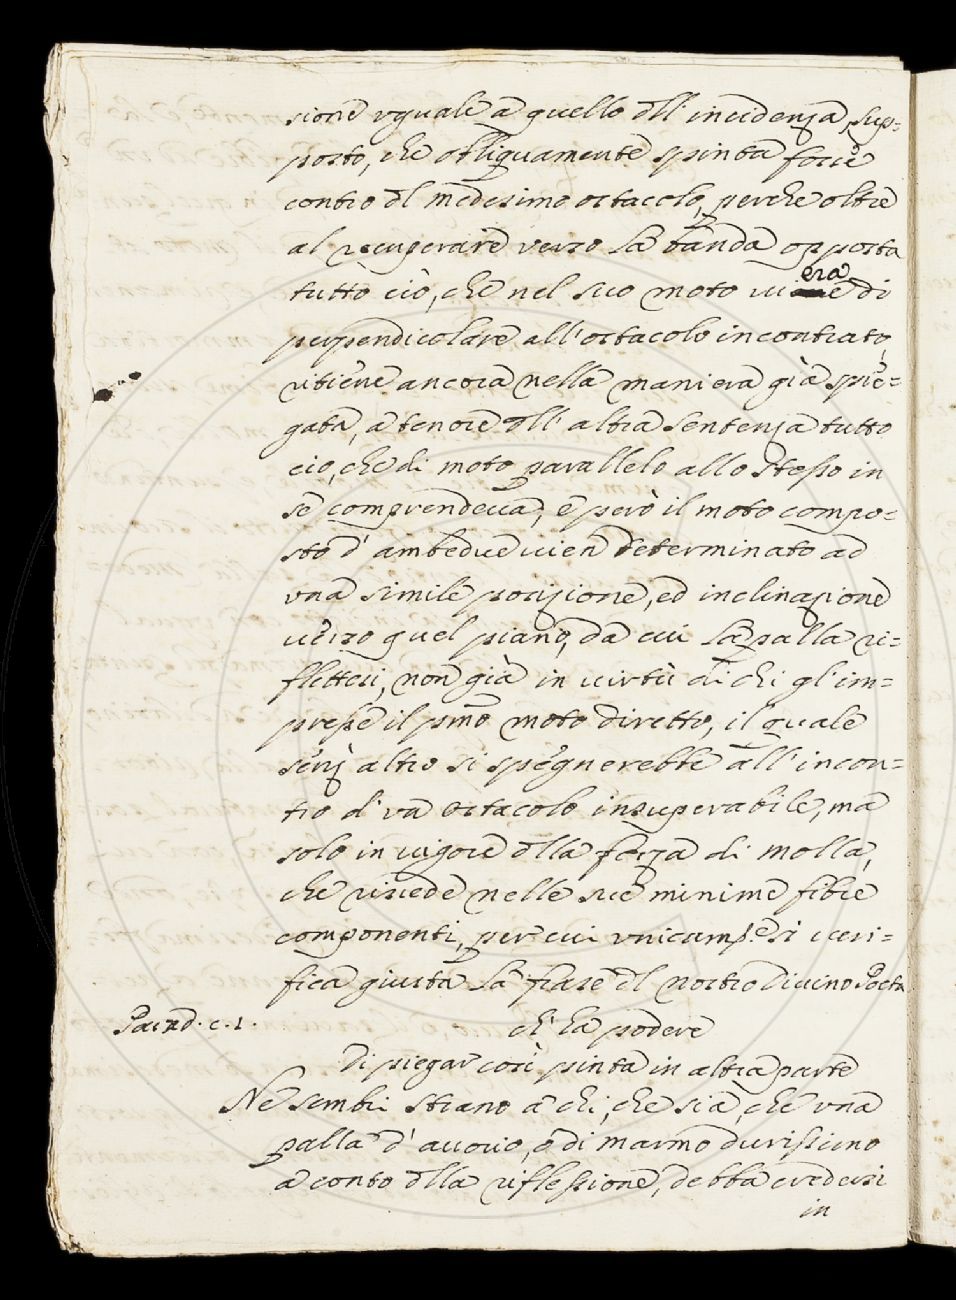 sione uguale a quello dll' incidenza, sup=
posto, che obliquamente spinta fosse
contro dl medesimo ostacolo, perche oltre
al recuperare verso la banda opposta
tutto ciò, che nel suo moto vi era di
perpendicolare all'ostacolo incontrato,
ritiene ancora nella maniera già spie=
gata, a tenore dll' altra sentenza tutto
cio, che di moto parallelo allo stesso in
se comprendeva, e però il moto compo=
sto d' ambedue vien determinato ad
vna simile posizione, ed inclinazione
verso quel piano, da cui la palla ri=
flettesi, non già in virtù di chi gl' im=
presse il pmo moto diretto, il quale
senz altro si spegnerebbe all' incon=
tro d' vn ostacolo insuperabile, ma
solo in vigore dlla forza di molla,
che risiede nelle sue minime fibre
componenti, per cui vnicamte si veri=
fica giusta la frase dl nostro Divino Poeta
Parad. c. 1.
ch' ha podere
Di piegar così pinta in altra parte
Ne sembri strano a chi, che sia, che vna
palla d' avorio, o di marmo durissimo
a conto dlla riflessione, debba credersi
in